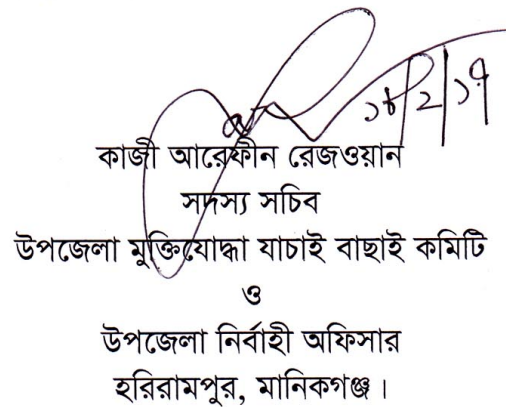 ১৮/২/১৭
কাজী আরেফীন রেজওয়ান
সদস্য সচিব
উপজেলা মুক্তিযোদ্ধা যাচাই বাছাই কমিটি
ও
উপজেলা নির্বাহী অফিসার
হরিরামপুর, মানিকগঞ্জ।